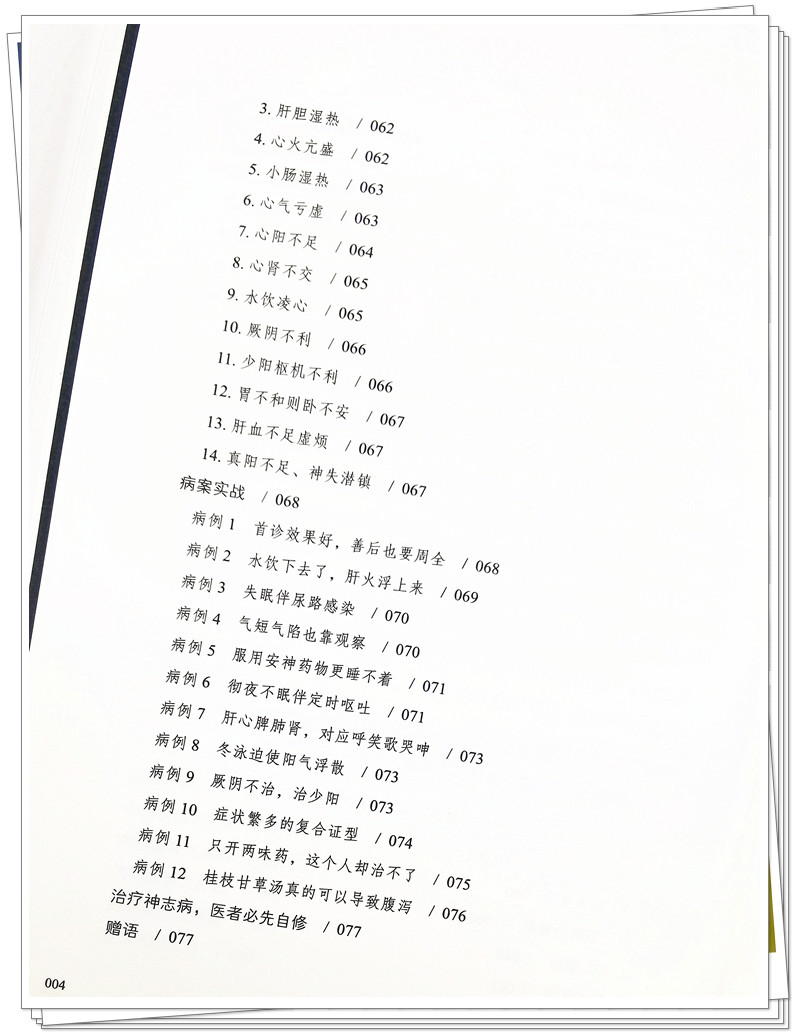 3. 肝胆湿热 / 062
4. 心火亢盛 / 062
5. 小肠湿热 / 063
6. 心气亏虚 / 063
7. 心阳不足 / 064
8. 心肾不交 / 065
9. 水饮凌心 / 065
10. 厥阴不利 / 066
11. 少阳枢机不利 / 066
12. 胃不和则卧不安 / 067
13. 肝血不足虚烦 / 067
14. 真阳不足、神失潜镇 / 067
病案实战 / 068
病例 1 首诊效果好，善后也要周全 / 068
病例 2 水饮下去了，肝火浮上来 / 069
病例 3 失眠伴尿路感染 / 070
病例 4 气短气陷也靠观察 / 070
病例 5 服用安神药物更睡不着 / 071
病例 6 彻夜不眠伴定时呕吐 / 071
病例 7 肝心脾肺肾，对应呼笑歌哭呻 / 073
病例 8 冬泳迫使阳气浮散 / 073
病例 9 厥阴不治，治少阳 / 073
病例 10 症状繁多的复合证型 / 074
病例 11 只开两味药，这个人却治不了 / 075
病例 12 桂枝甘草汤真的可以导致腹泻 / 076
治疗神志病，医者必先自修 / 077
赠语 / 077
004